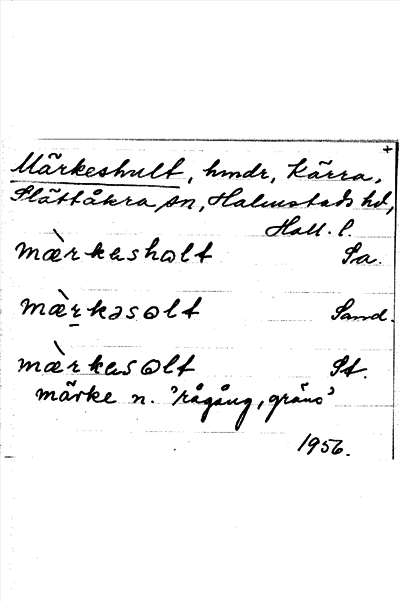 +
Märkeshult, hmdr, Kärra,
Slättåkra sn, Halmstads hd,
Hall. l.
mæ̀rkəshɷlt Sa.
mæ̀rkəsɷlt Sand.
mæ̀rkəsɷlt St.
märke n. 'rågång, gräns'
1956.